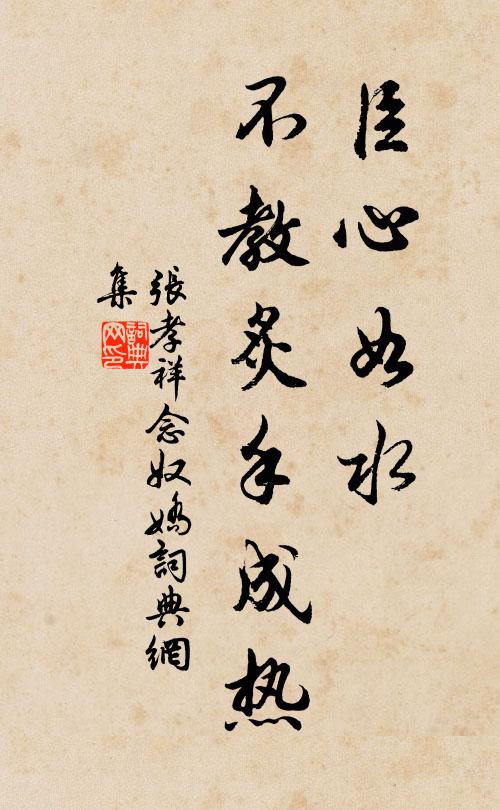 臣心如水
不教炙手成热
張孝祥念奴嬌詞典網
集
詞典網印